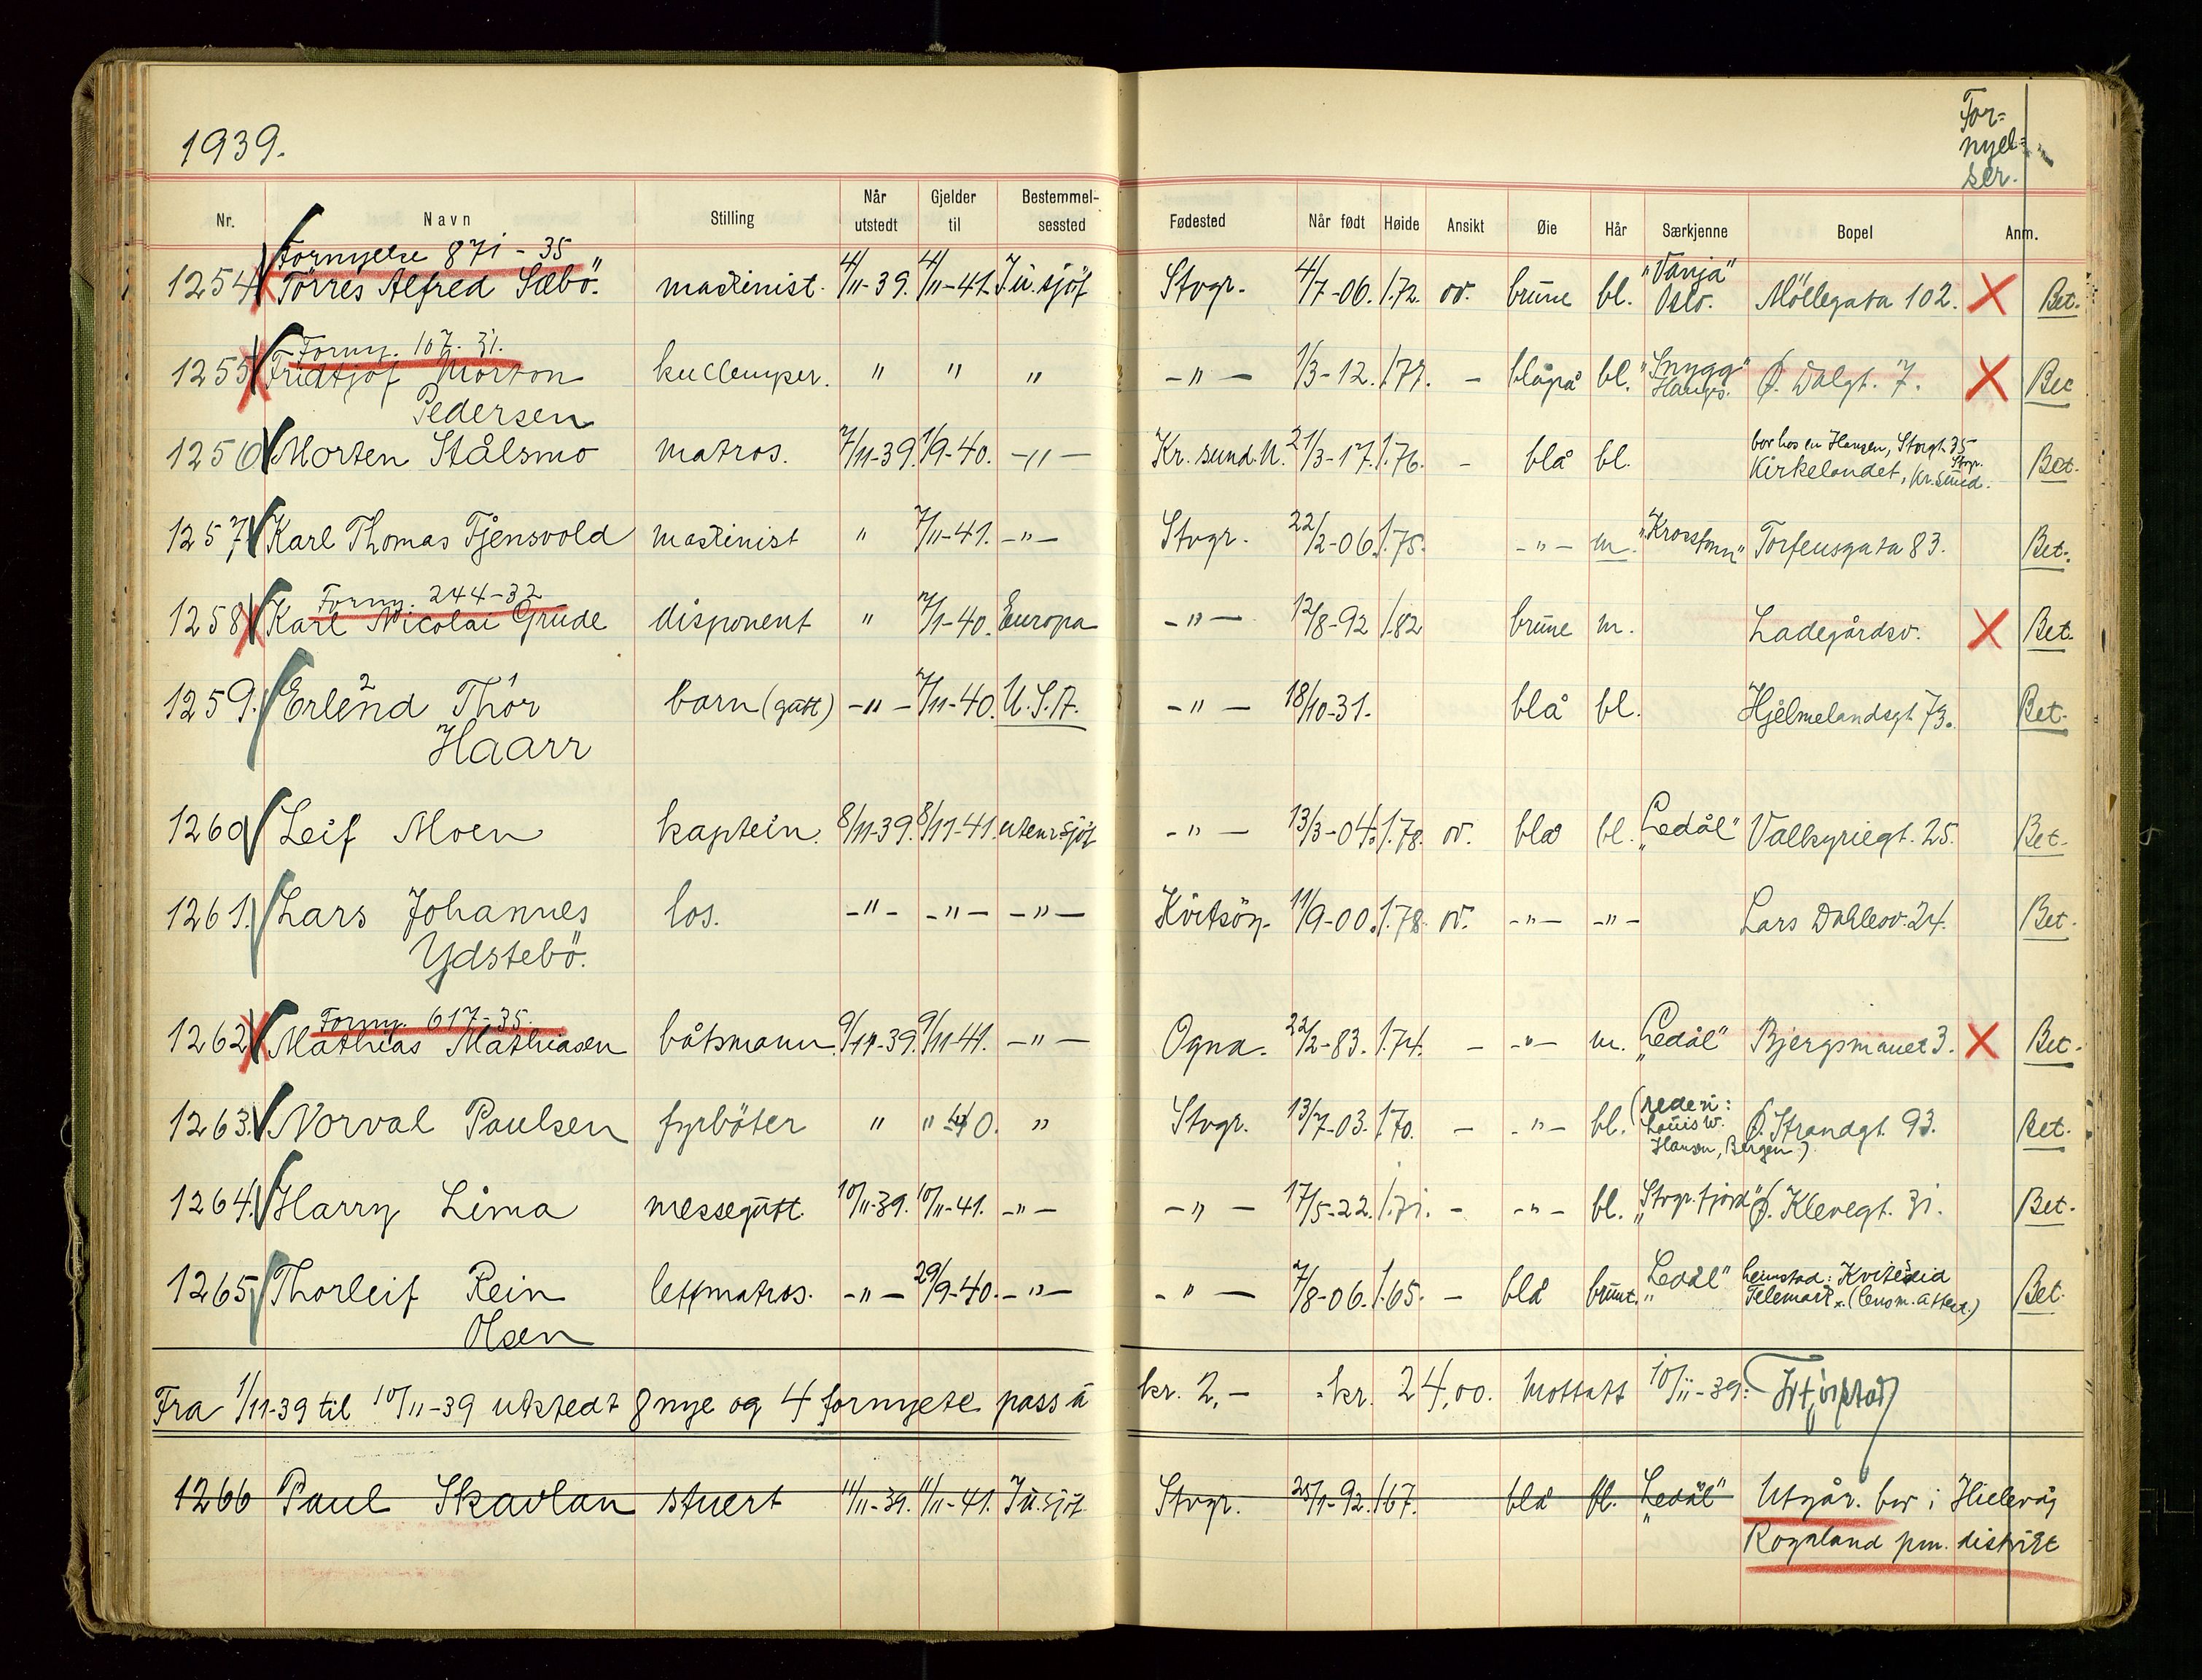 1939.
For-
nyel-
ser.
Nr. Navn Stilling Når utstedt Gjelder til Bestemmelsessted Fødested Når født Høide Ansikt Øie Hår Særkjenne Bopel Anm.
Fornyelse 871 - 35
1254 Torres Alfred Sæbö. maskinist. 4/11-39. 4/11-41. I u. sjöf Stvgr. 4/7-06. 1.72. ov. brune bl. "Vanja" Oslo. Möllegata 102. X Bet.
Forny. 107 - 31.
1255 Fridtjof Morton kullemper. " " " -"- 1/3-12. 1.77. - blågrå bl. "Snygg" Haugs. Ø. Dalgt. 7. X Bet
Pedersen
bor hos en Hansen, Storgt. 35 Stvgr.
1256 Morten Stålsmo matros. 7/11-39. 1/9-40. -"- Kr.sund.N. 21/3-17. 1.76. - blå bl. Kirkelandet, Kr.sund. Bet.
1257 Karl Thomas Tjensvold maskinist " 7/11-41. -"- Stvgr. 22/2-06. 1.75. -"- m. Torfeusgata 83. Bet.
Forny. 244-32
1258 Karl Nicolai Grude disponent " 7/1-40. Europa -"- 12/8-92 1.82 brune m. Ladegårdsv. X Bet.
2 1
1259. Erlend Thor barn (gutt) -"- 7/11-40. U.S.A. -"- 18/10-31. blå bl. Hjelmelandsgt. 73. Bet.
Haarr
1260 Leif Moen kaptein. 8/11-39. 8/11-41. utenr.sjöf -"- 13/3-04. 1.78. ov. blå bl. "Ledål" Valkyriegt. 25. Bet.
1261. Lars Johannes los. -"- -"- -"- Kvitsöy. 11/9-00. 1.78. ov. -"- -"- Lars Dahlesv. 24. Bet.
Ydstebö.
Forny. 617-35.
1262 Mathias Mathiasen båtsmann. 9/11-39. 9/11-41. -"- Ogna. 22/2-83. 1.74. - -"- m. "Ledål" Bjergsmauet 3. X Bet.
1263. Norval Paulsen fyrböter " " -40. " Stvgr. 13/7-03. 1.70. - -"- bl. (rederi: Louis W. Hanson, Bergen) Ø. Strandgt. 93. Bet.
1264. Harry Lima messegutt. 10/11-39. 10/11-41. -"- -"- 17/5-22. 1.71. - -"- bl. "Stvgr.fjord" Ø. Klevegt. 31. Bet.
1265 Thorleif Rein lettmatros. -"- 29/9-40. -"- -"- 7/8-06. 1.65. - blå brunt. "Ledål" hemstad: Kviteseid Telemark. (lensm. attest.) Bet.
Olsen
Fra 1/11-39 til 10/11-39 utstedt 8 nye og 4 fornyete pass à kr. 2,- = kr. 24,00. Mottatt 10/11-39:
1266 Paul Skavlan stuert 11/11-39. 11/11-41. I u. sjöf. Stvgr. 25/1-92. 1.67. blå bl. "Ledål" Utgår. bor i Hillevåg
Rogaland pm. distrikt